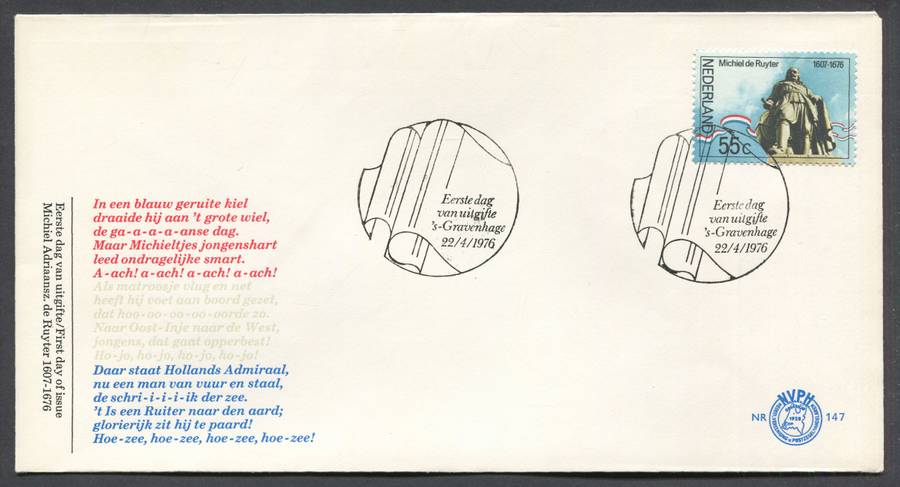 Michiel de Ruyter 1607-1676
NEDERLAND
55c
Eerste dag
van uitgifte
's-Gravenhage
22/4/1976
Eerste dag
van uitgifte
's-Gravenhage
22/4/1976
Eerste dag van uitgifte/First day of issue
Michiel Adriaansz. de Ruyter 1607-1676
In een blauw geruite kiel
draaide hij aan 't grote wiel,
de ga-a-a-a-anse dag.
Maar Michieltjes jongenshart
leed ondragelijke smart.
A-ach! a-ach! a-ach! a-ach!
Als matroosje vlug en net
heeft hij voet aan boord gezet,
dat hoo-oo-oo-oo-oorde zo.
Naar Oost-Inje naar de West,
jongens, dat gaat opperbest!
Ho-jo, ho-jo, ho-jo, ho-jo!
Daar staat Hollands Admiraal,
nu een man van vuur en staal,
de schri-i-i-i-ik der zee.
't Is een Ruiter naar den aard;
glorierijk zit hij te paard!
Hoe-zee, hoe-zee, hoe-zee, hoe-zee!
NR
N.V.P.H.
1928
147